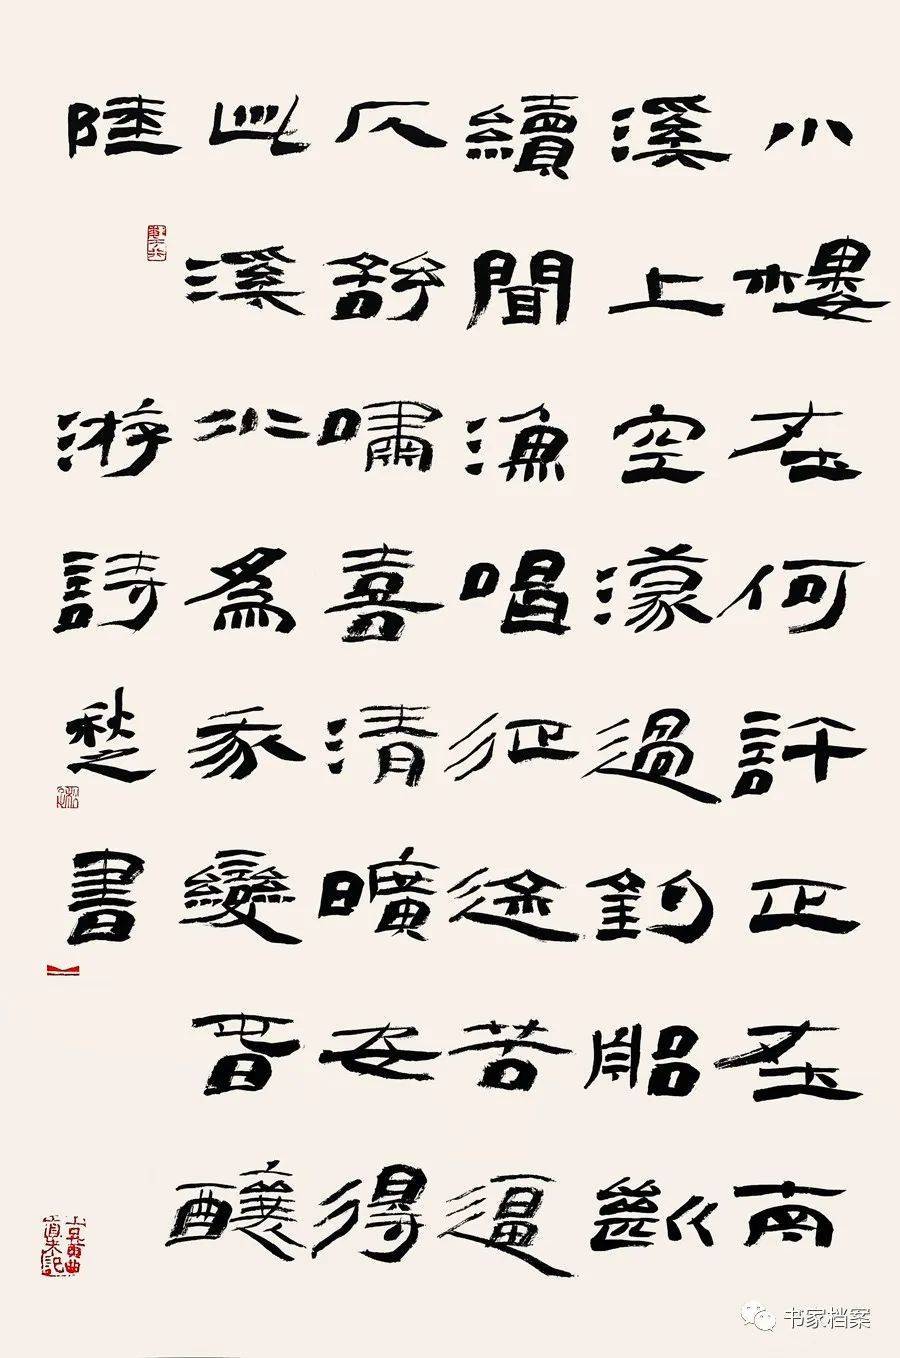 小樓在何許正在南
溪上空濛過釣船斷
續聞漁唱征途苦逼
仄舒嘯喜清曠安得
此溪水為我變春釀
陸游詩書
书家档案